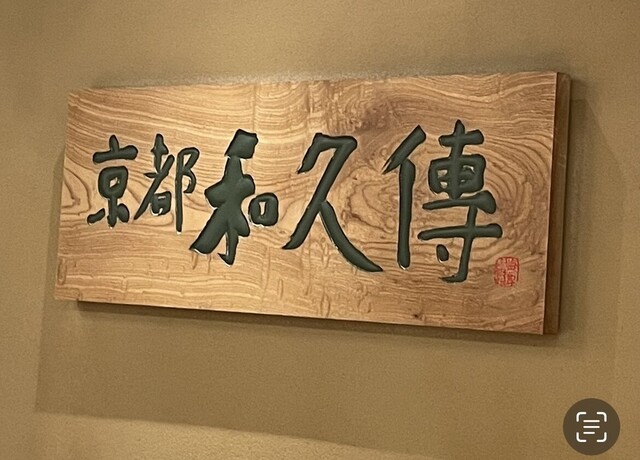 京都和久傳